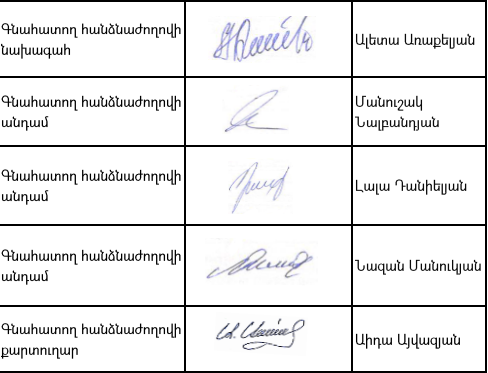 Գնահատող հանձնաժողովի
նախագահ
Ալետա Առաքելյան
Գնահատող հանձնաժողովի
անդամ
Մանուշակ
Նալբանդյան
Գնահատող հանձնաժողովի
անդամ
Լալա Դանիելյան
Գնահատող հանձնաժողովի
անդամ
Նազան Մանուկյան
Գնահատող հանձնաժողովի
քարտուղար
Աիդա Այվազյան